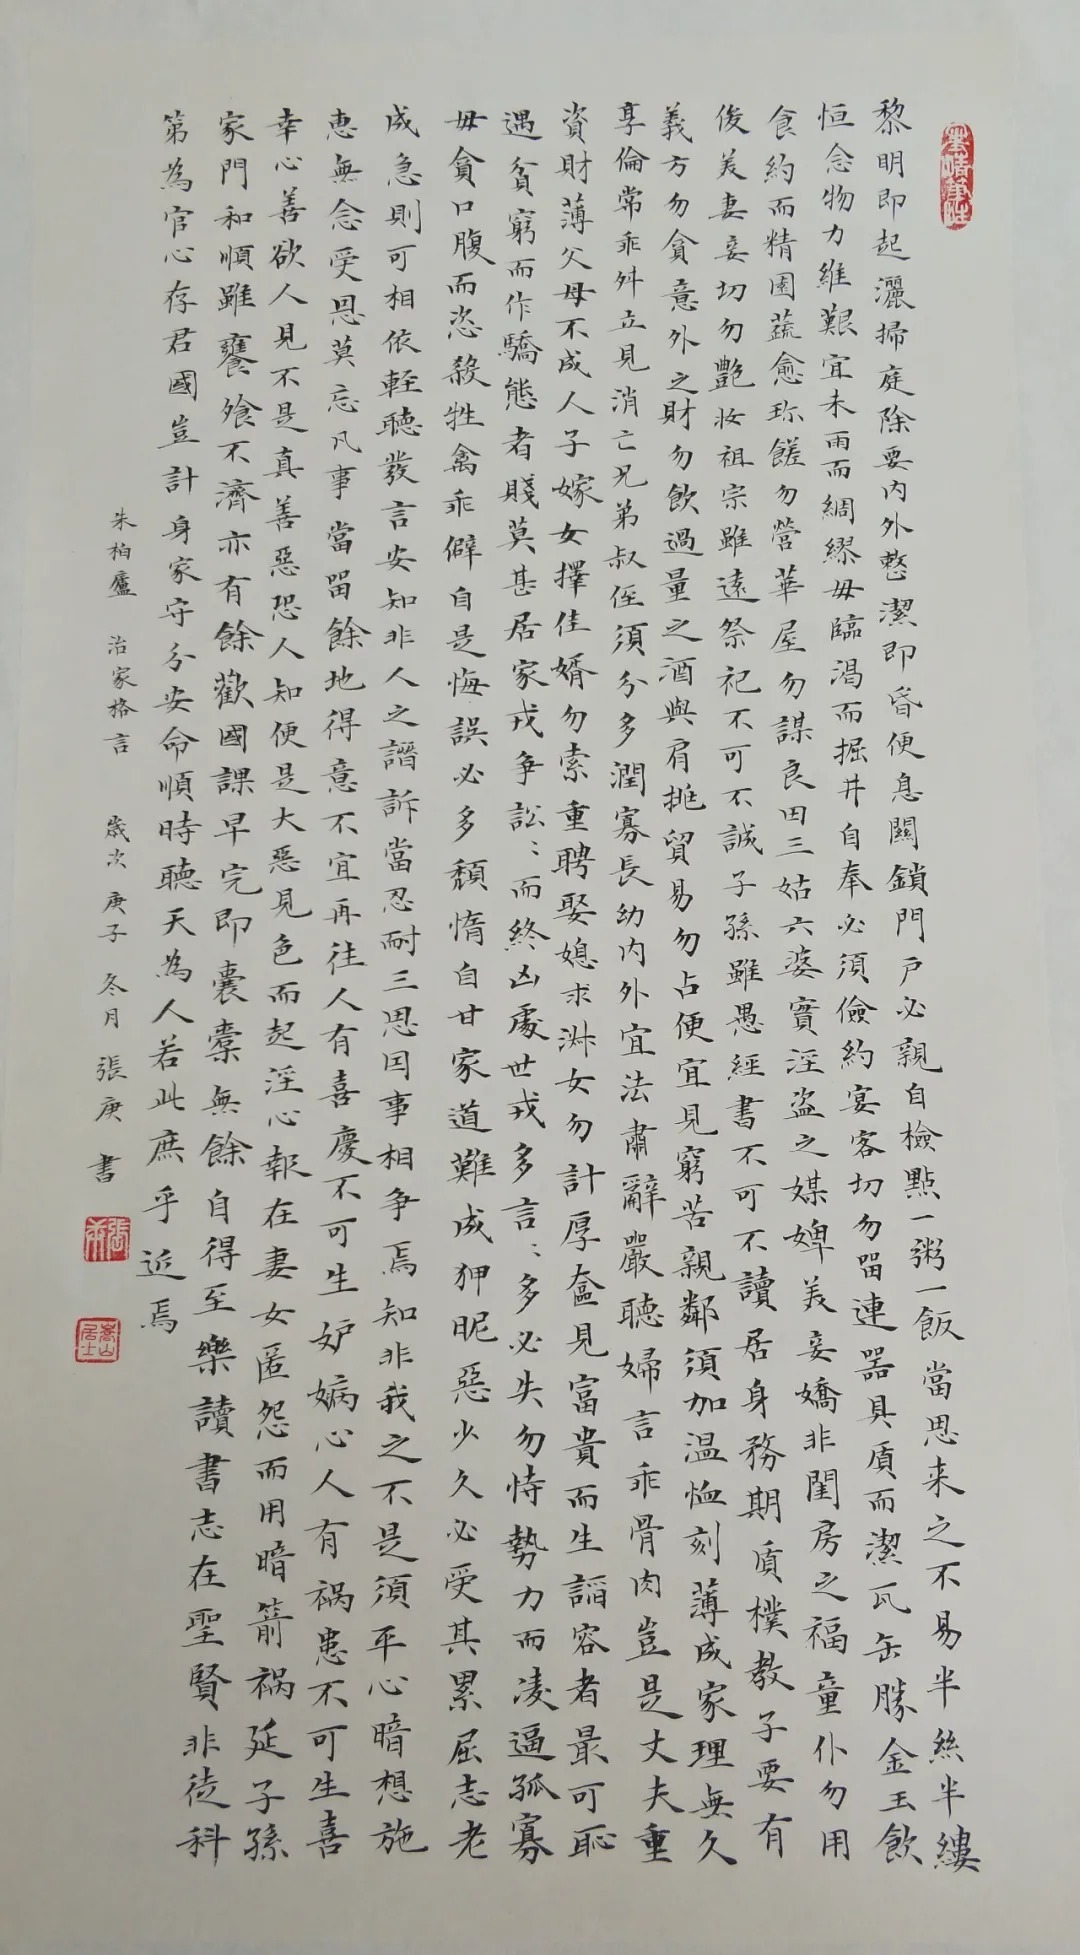 黎明即起灑掃庭除要内外整潔即昏便息關鎖門戶必親自檢點一粥一飯當思来之不易半絲半縷
恒念物力維艱宜未雨而綢繆毋臨渴而掘井自奉必須儉約宴客切勿畱連器具質而潔瓦缶勝金玉飲
食約而精園蔬愈珎饈勿營華屋勿謀良田三姑六婆實淫盗之媒婢美妾嬌非閨房之福童仆勿用
俊美妻妾切勿艷妆祖宗雖遠祭祀不可不誠子孫雖愚經書不可不讀居身務期質樸教子要有
義方勿貪意外之財勿飲過量之酒與肩挑貿易勿占便宜見窮苦親鄰須加温恤刻薄成家理無久
享倫常乖舛立見消亡兄弟叔侄須分多潤寡長幼内外宜法肅辭嚴聽婦言乖骨肉豈是丈夫重
資財薄父母不成人子嫁女擇佳婿勿索重聘娶媳求淑女勿計厚奩見富貴而生諂容者最可恥
遇貧窮而作驕態者賤莫甚居家戒争訟〻而終凶處世戒多言〻多必失勿恃勢力而凌逼孤寡
毋貪口腹而恣殺牲禽乖僻自是悔誤必多頹惰自甘家道難成狎昵惡少久必受其累屈志老
成急則可相依輕聽發言安知非人之譖訴當忍耐三思因事相争焉知非我之不是須平心暗想施
惠無念受恩莫忘凡事當畱餘地得意不宜再往人有喜慶不可生妒嫉心人有禍患不可生喜
幸心善欲人見不是真善惡恐人知便是大惡見色而起淫心報在妻女匿怨而用暗箭禍延子孫
家門和順雖饔飧不濟亦有餘歡國課早完即囊橐無餘自得至樂讀書志在聖賢非徒科
第為官心存君國豈計身家守分安命順時聽天為人若此庶乎近焉
朱柏廬 治家格言 歲次庚子冬月 張庚 書
嵩山居士